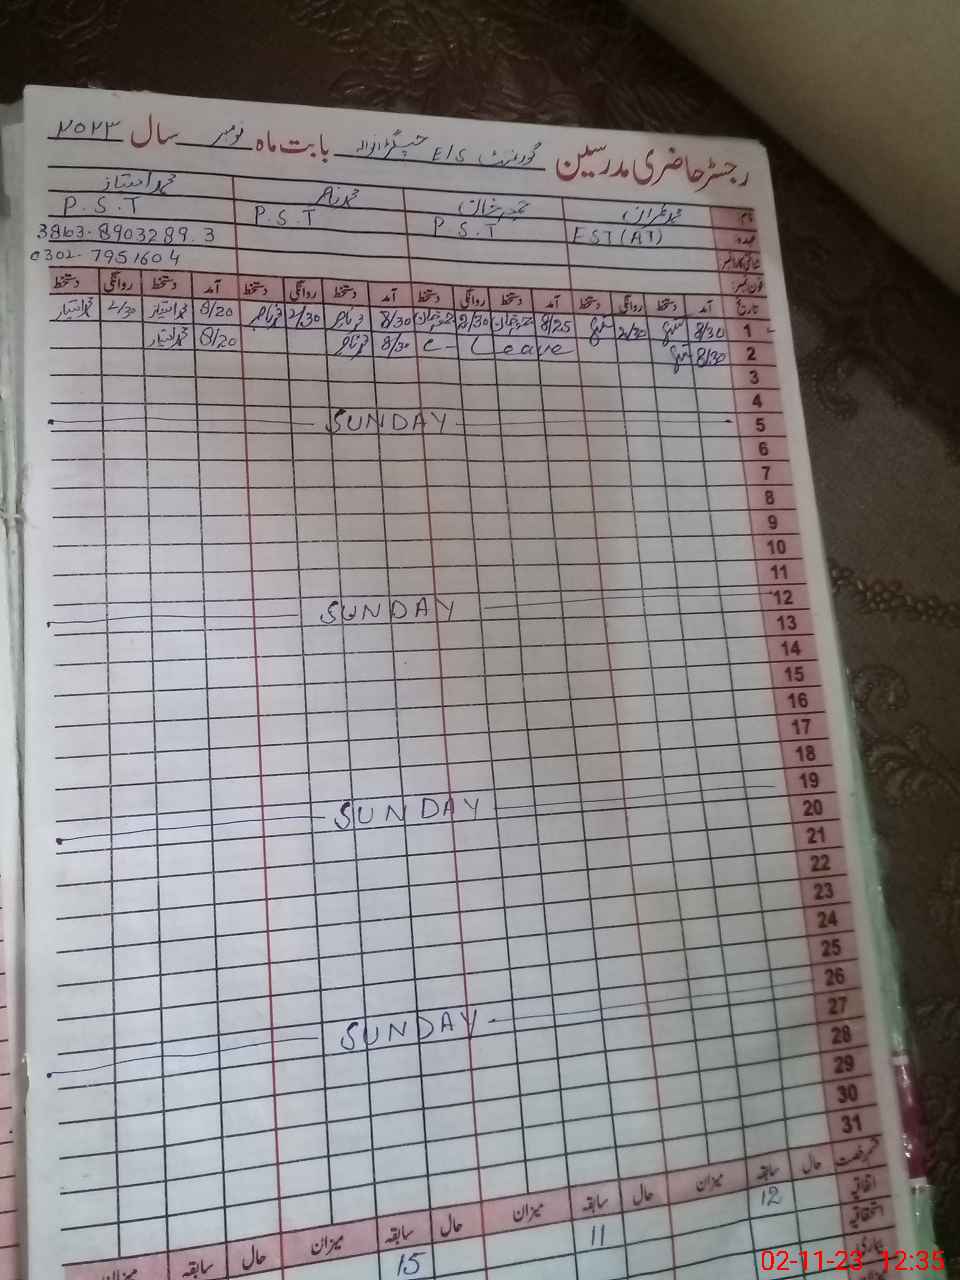 رجسٹر حاضری مدرسین گورنمنٹ E/S بابت ماہ نومبر سال ۲۰۲۳
نام محمد عمران محمد ناصر محمد امتیاز
عہدہ EST (AT) P.S.T P.S.T P.S.T
شناختی کارڈ نمبر
فون نمبر 0302-7951604
تاریخ آمد دستخط روانگی دستخط آمد دستخط روانگی دستخط آمد دستخط روانگی دستخط آمد دستخط روانگی دستخط
1 8/30 2/30 8/25 2/30 8/30 محمد ناصر 2/30 محمد ناصر 8/20 محمد امتیاز 2/30 محمد امتیاز
2 8/30 C- Leave 8/30 محمد ناصر 8/20 محمد امتیاز
3
4
5 SUNDAY
6
7
8
9
10
11
12 SUNDAY
13
14
15
16
17
18
19 SUNDAY
20
21
22
23
24
25
26 SUNDAY
27
28
29
30
31
قسم رخصت حال سابقہ میزان حال سابقہ میزان حال سابقہ میزان حال سابقہ میزان
اتفاقیہ 12 11 15
استحقاقیہ
بیماری
02-11-23 12:35